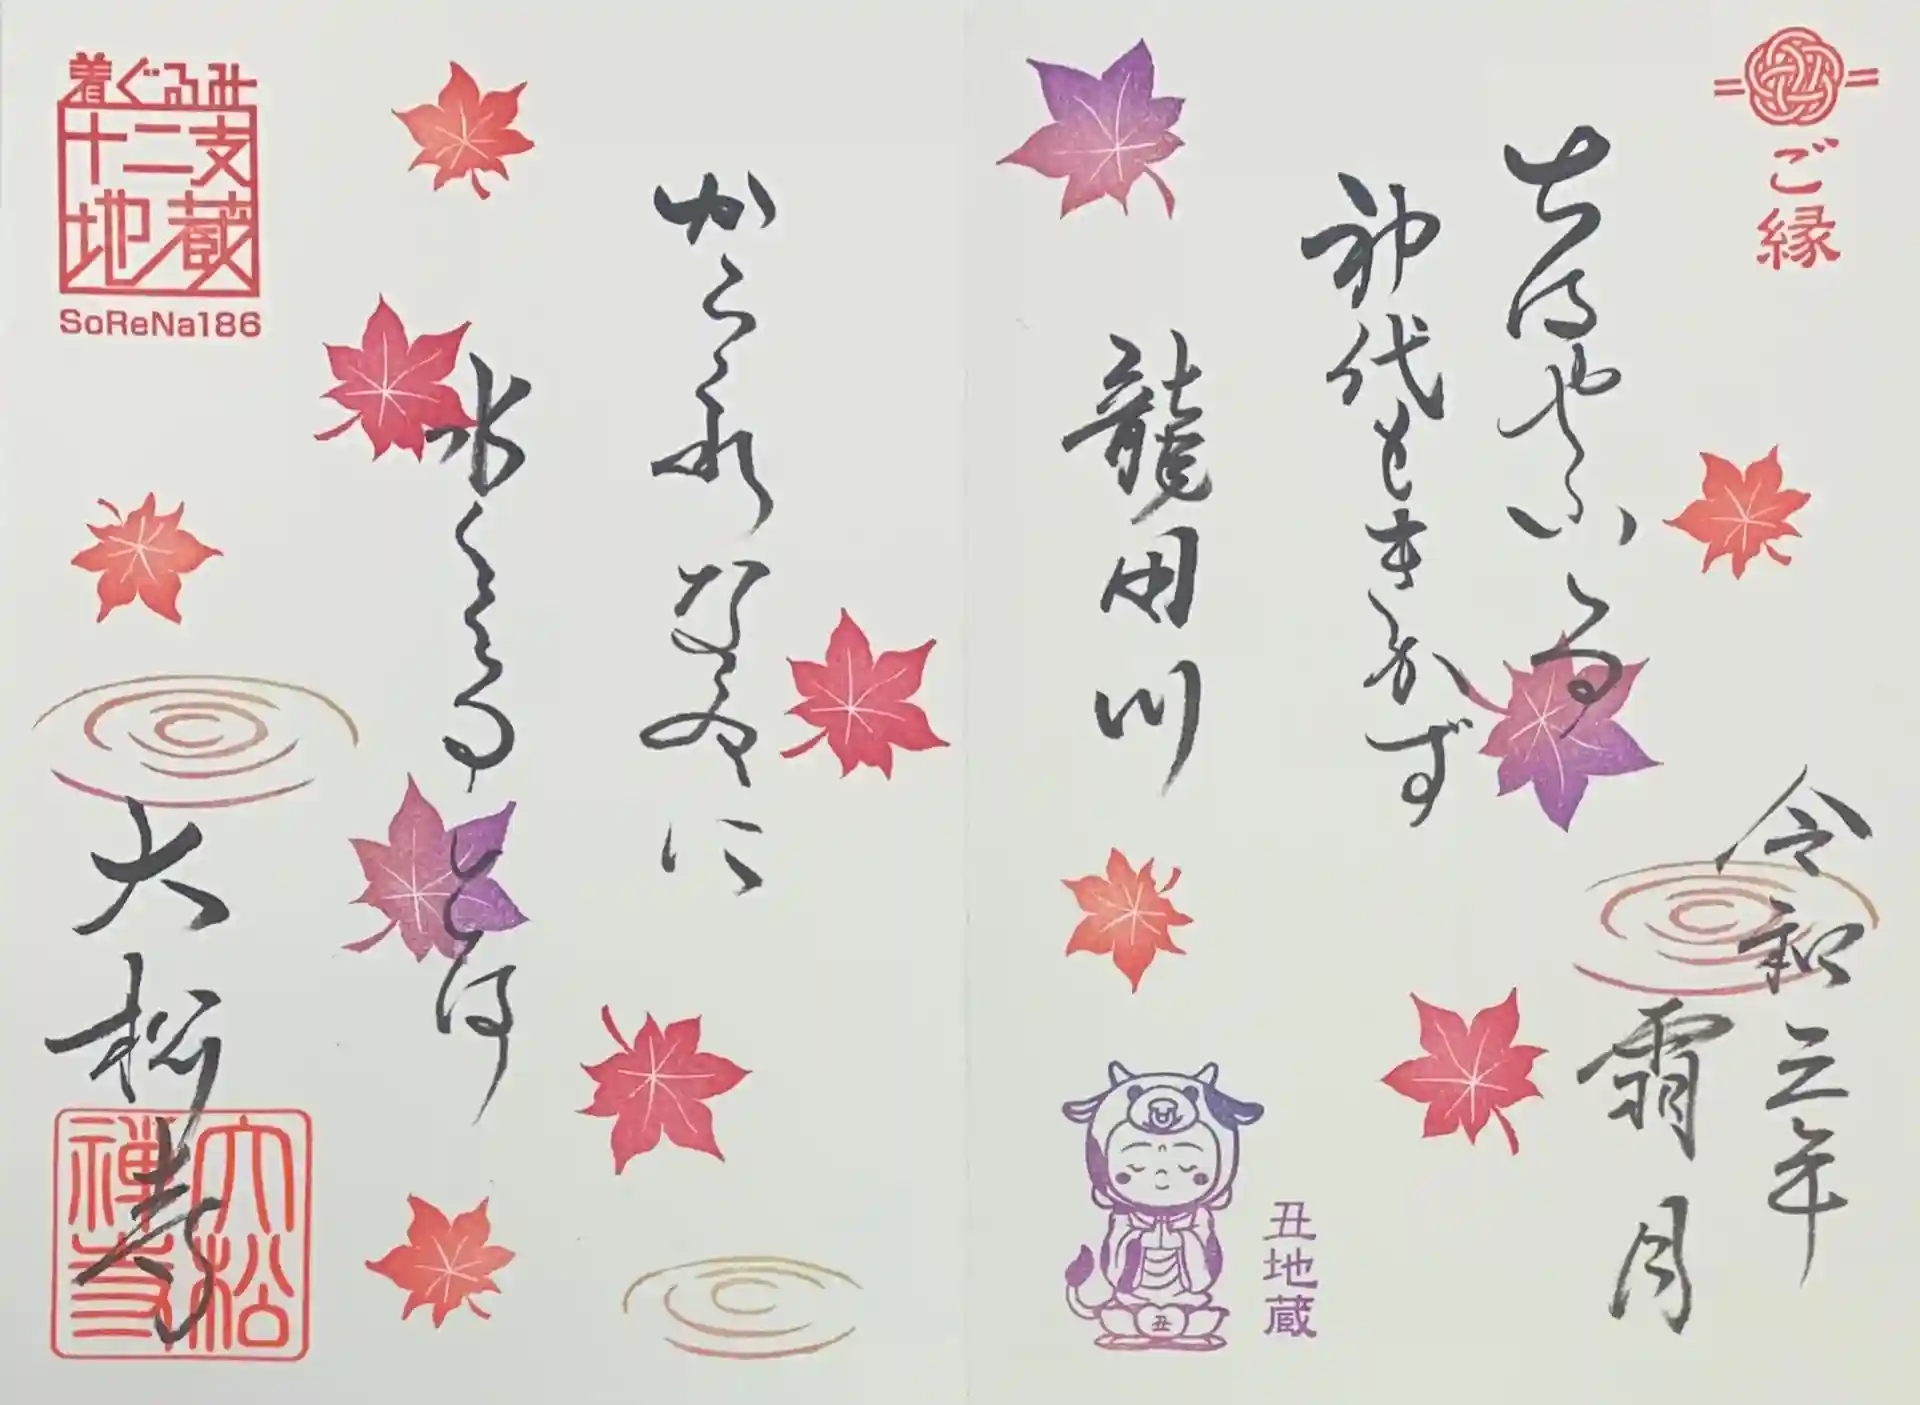 ご縁
ちはやふる
神代もきかず
龍田川
令和三年
霜月
丑地蔵
丑
からくれなゐに
水くくるとは
着ぐるみ
十二支
地蔵
SoReNa186
大松寺
大松
禅寺